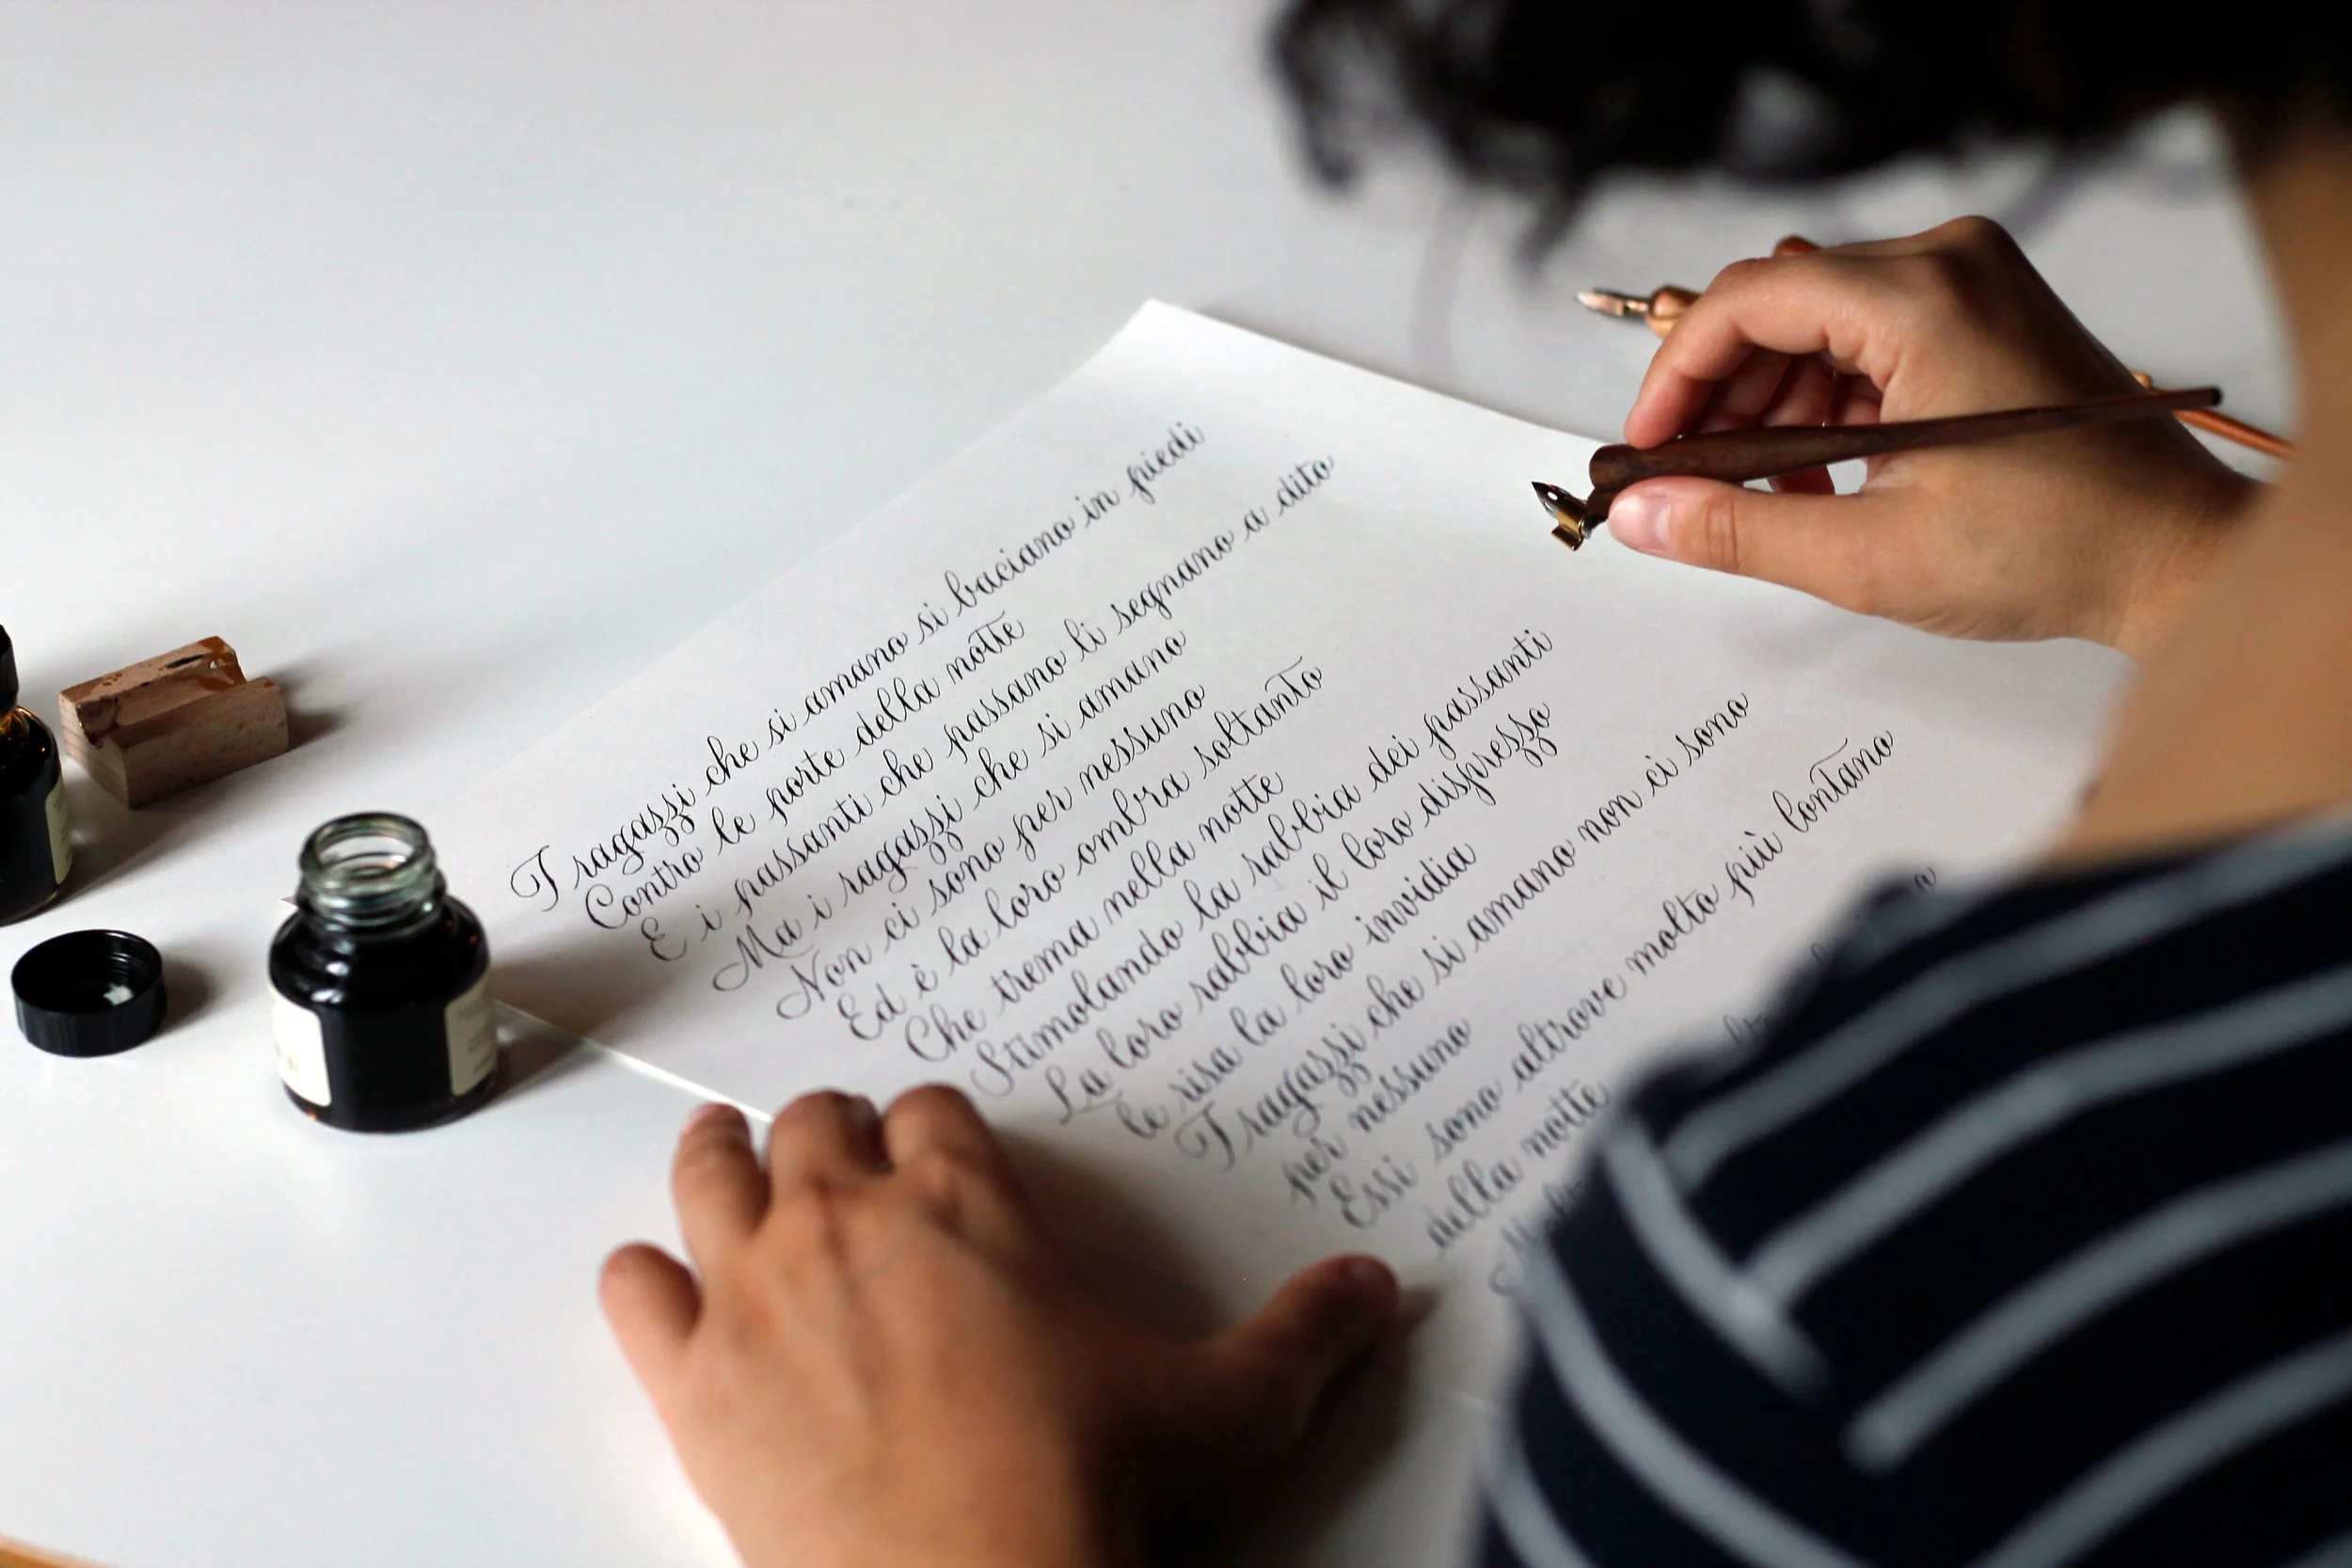 I ragazzi che si amano si baciano in piedi
Contro le porte della notte
E i passanti che passano li segnano a dito
Ma i ragazzi che si amano
Non ci sono per nessuno
Ed è la loro ombra soltanto
Che trema nella notte
Stimolando la rabbia dei passanti
La loro rabbia il loro disprezzo
le risa la loro invidia
I ragazzi che si amano non ci sono
per nessuno
Essi sono altrove molto più lontano
della notte